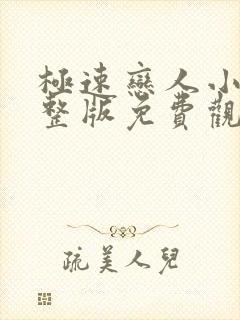 極速戀人小
整版免費觀
疏美人兒